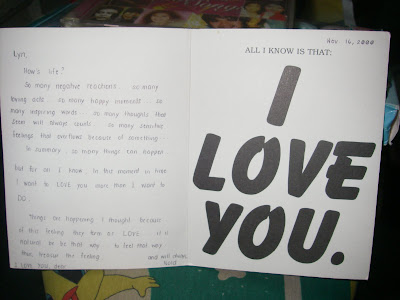 Lyn,
How's life?
So many negative reactions.. so many
loving acts.. so many happy moments.. so
many inspiring words.. so many thoughts that
will always
feelings that overflows because of something..
In summary.. so many things can happen..
But for all I know, in this moment in time
I want to LOVE you more than I need to
DO.
Things are happening I thought. Because
of this feeling they term as LOVE.. it is
natural to be that way.. to feel that way
treasure the feeling
and will always,
I love you
Nov. 16, 2000
ALL I KNOW IS THAT:
I
LOVE
YOU.